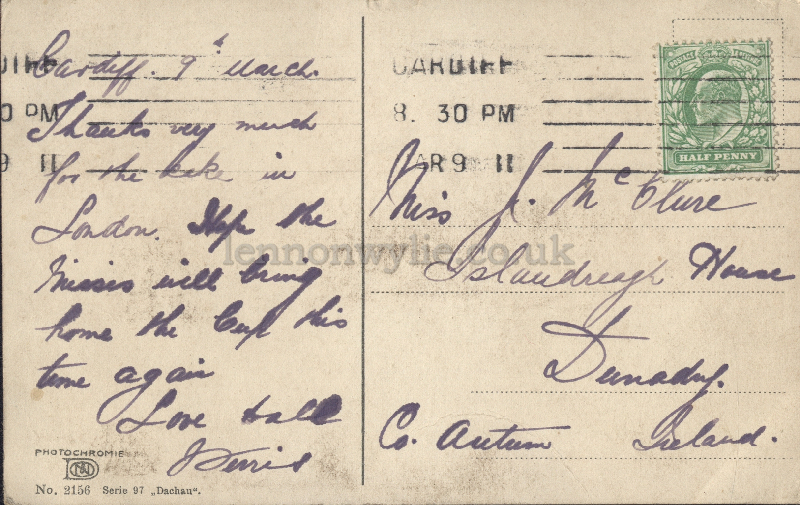 Cardiff. 9th March.
Thanks very much
for the cake in
London. Hope the
Misses will bring
home the Cup this
time again
Love to all
CARDIFF
8. 30 PM
AR 9 11
IFF
0 PM
9 11
HALF PENNY
Miss J. McClure
Islandreagh House
Dunadry.
Co. Antrim Ireland.
lennonwylie.co.uk
PHOTOCHROMIE
No. 2156 Serie 97 „Dachau“.